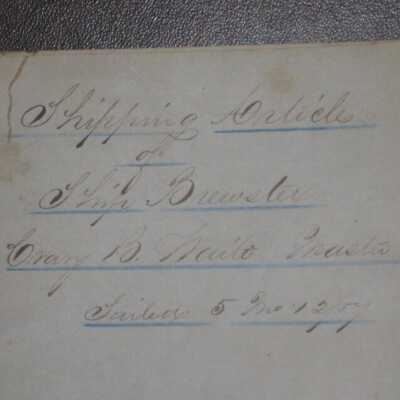 Shipping Article
of
Ship Brewster
B. Waite Master
Sailed 5 Mo 12